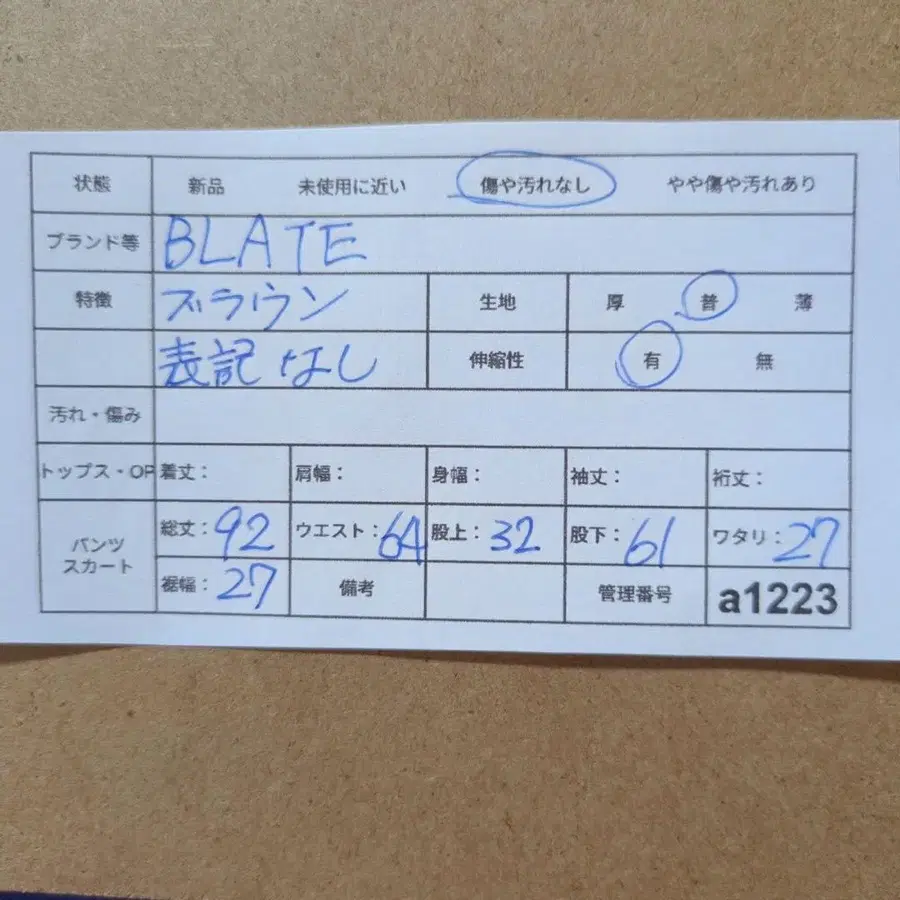 状態 新品 未使用に近い 傷や汚れなし やや傷や汚れあり
ブランド等 BLATE
特徴 ブラウン 生地 厚 普 薄
表記なし 伸縮性 有 無
汚れ・傷み
トップス・OP 着丈： 肩幅： 身幅： 袖丈： 裄丈：
パンツ スカート 総丈：92 ウエスト：64 股上：32 股下：61 ワタリ：27
裾幅：27 備考 管理番号 a1223